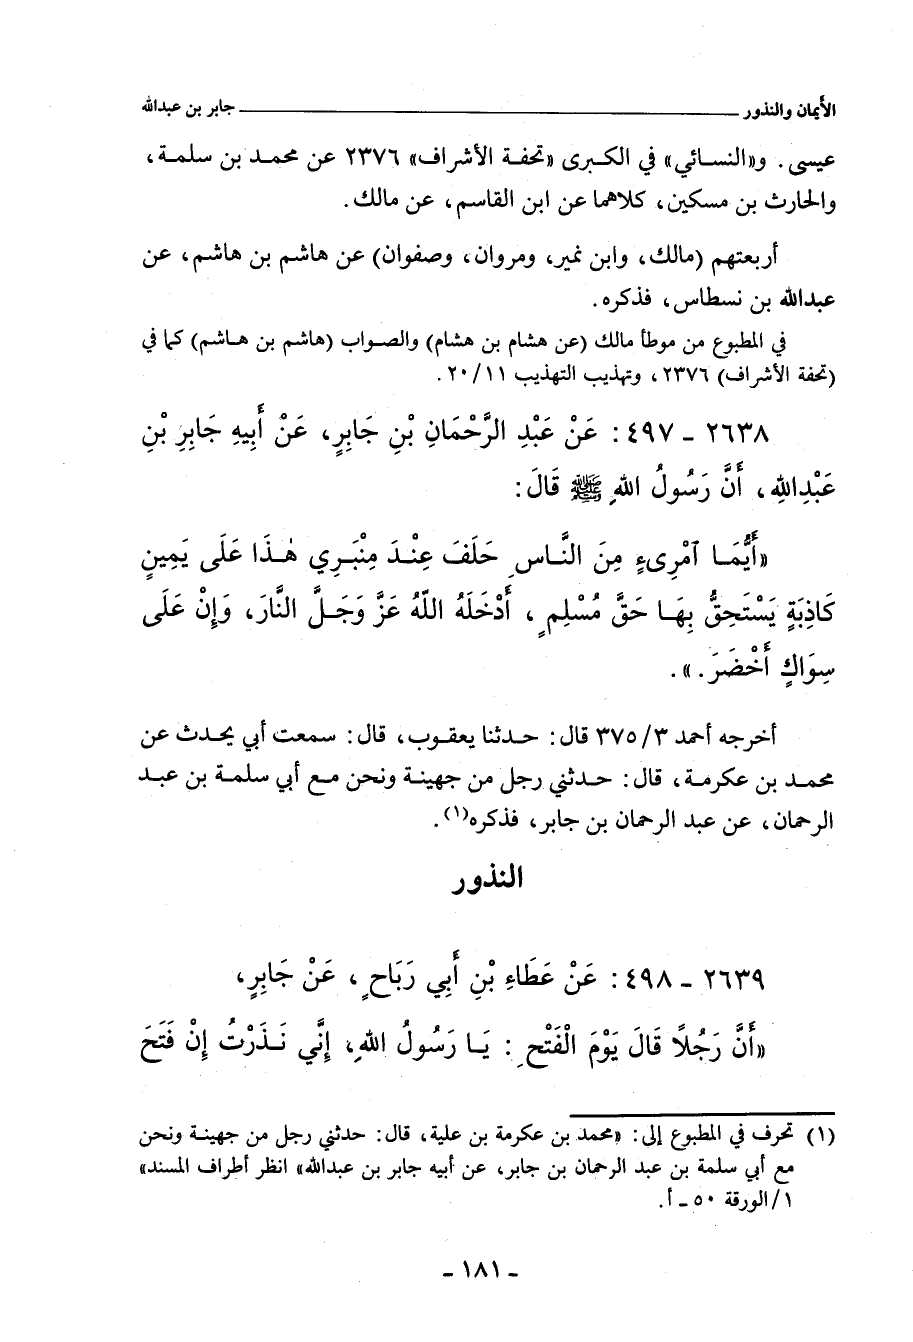 الأيمان والنذور ــــــــــــــــــــ جابر بن عبدالله
عيسى. و«النسائي» في الكبرى «تحفة الأشراف» ٢٣٧٦ عن محمد بن سلمة،
والحارث بن مسكين، كلاهما عن ابن القاسم، عن مالك.
أربعتهم (مالك، وابن نمير، ومروان، وصفوان) عن هاشم بن هاشم، عن
عبدالله بن نسطاس، فذكره.
في المطبوع من موطأ مالك (عن هشام بن هشام) والصواب (هاشم بن هاشم) كما في
(تحفة الأشراف) ٢٣٧٦، وتهذيب التهذيب ٢٠/١١.
٢٦٣٨ ـ ٤٩٧: عَنْ عَبْدِ الرَّحْمَانِ بْنِ جَابِرٍ، عَنْ أَبِيهِ جَابِرِ بْنِ
عَبْدِاللهِ، أَنَّ رَسُولُ اللهِ ﷺ قَالَ:
«أَيُّمَا آمْرِىءٍ مِنَ النَّاسِ حَلَفَ عِنْدَ مِنْبَرِي هٰذَا عَلَى يَمِينٍ
كَاذِبَةٍ يَسْتَحِقُّ بِهَا حَقَّ مُسْلِمٍ، أَدْخَلَهُ اللّهُ عَزَّ وَجَلَّ النَّارَ، وَإِنْ عَلَى
سِوَاكٍ أَخْضَرَ.».
أخرجه أحمد ٣٧٥/٣ قال: حدثنا يعقوب، قال: سمعت أبي يحدث عن
محمد بن عكرمة، قال: حدثني رجل من جهينة ونحن مع أبي سلمة بن عبد
الرحمان، عن عبد الرحمان بن جابر، فذكره(١).
النذور
٢٦٣٩ ـ ٤٩٨: عَنْ عَطَاءِ بْنِ أَبِي رَبَاحٍ، عَنْ جَابِرٍ،
«أَنَّ رَجُلاً قَالَ يَوْمَ الْفَتْحِ: يَا رَسُولُ اللهِ، إِنَّي نَذَرْتُ إِنْ فَتَحَ
(١) تحرف في المطبوع إلى: «محمد بن عكرمة بن علية، قال: حدثني رجل من جهينة ونحن
مع أبي سلمة بن عبد الرحمان بن جابر، عن أبيه جابر بن عبدالله» انظر أطراف المسند»
١/الورقة ٥٠ ـ أ.
ـ ١٨١ ـ